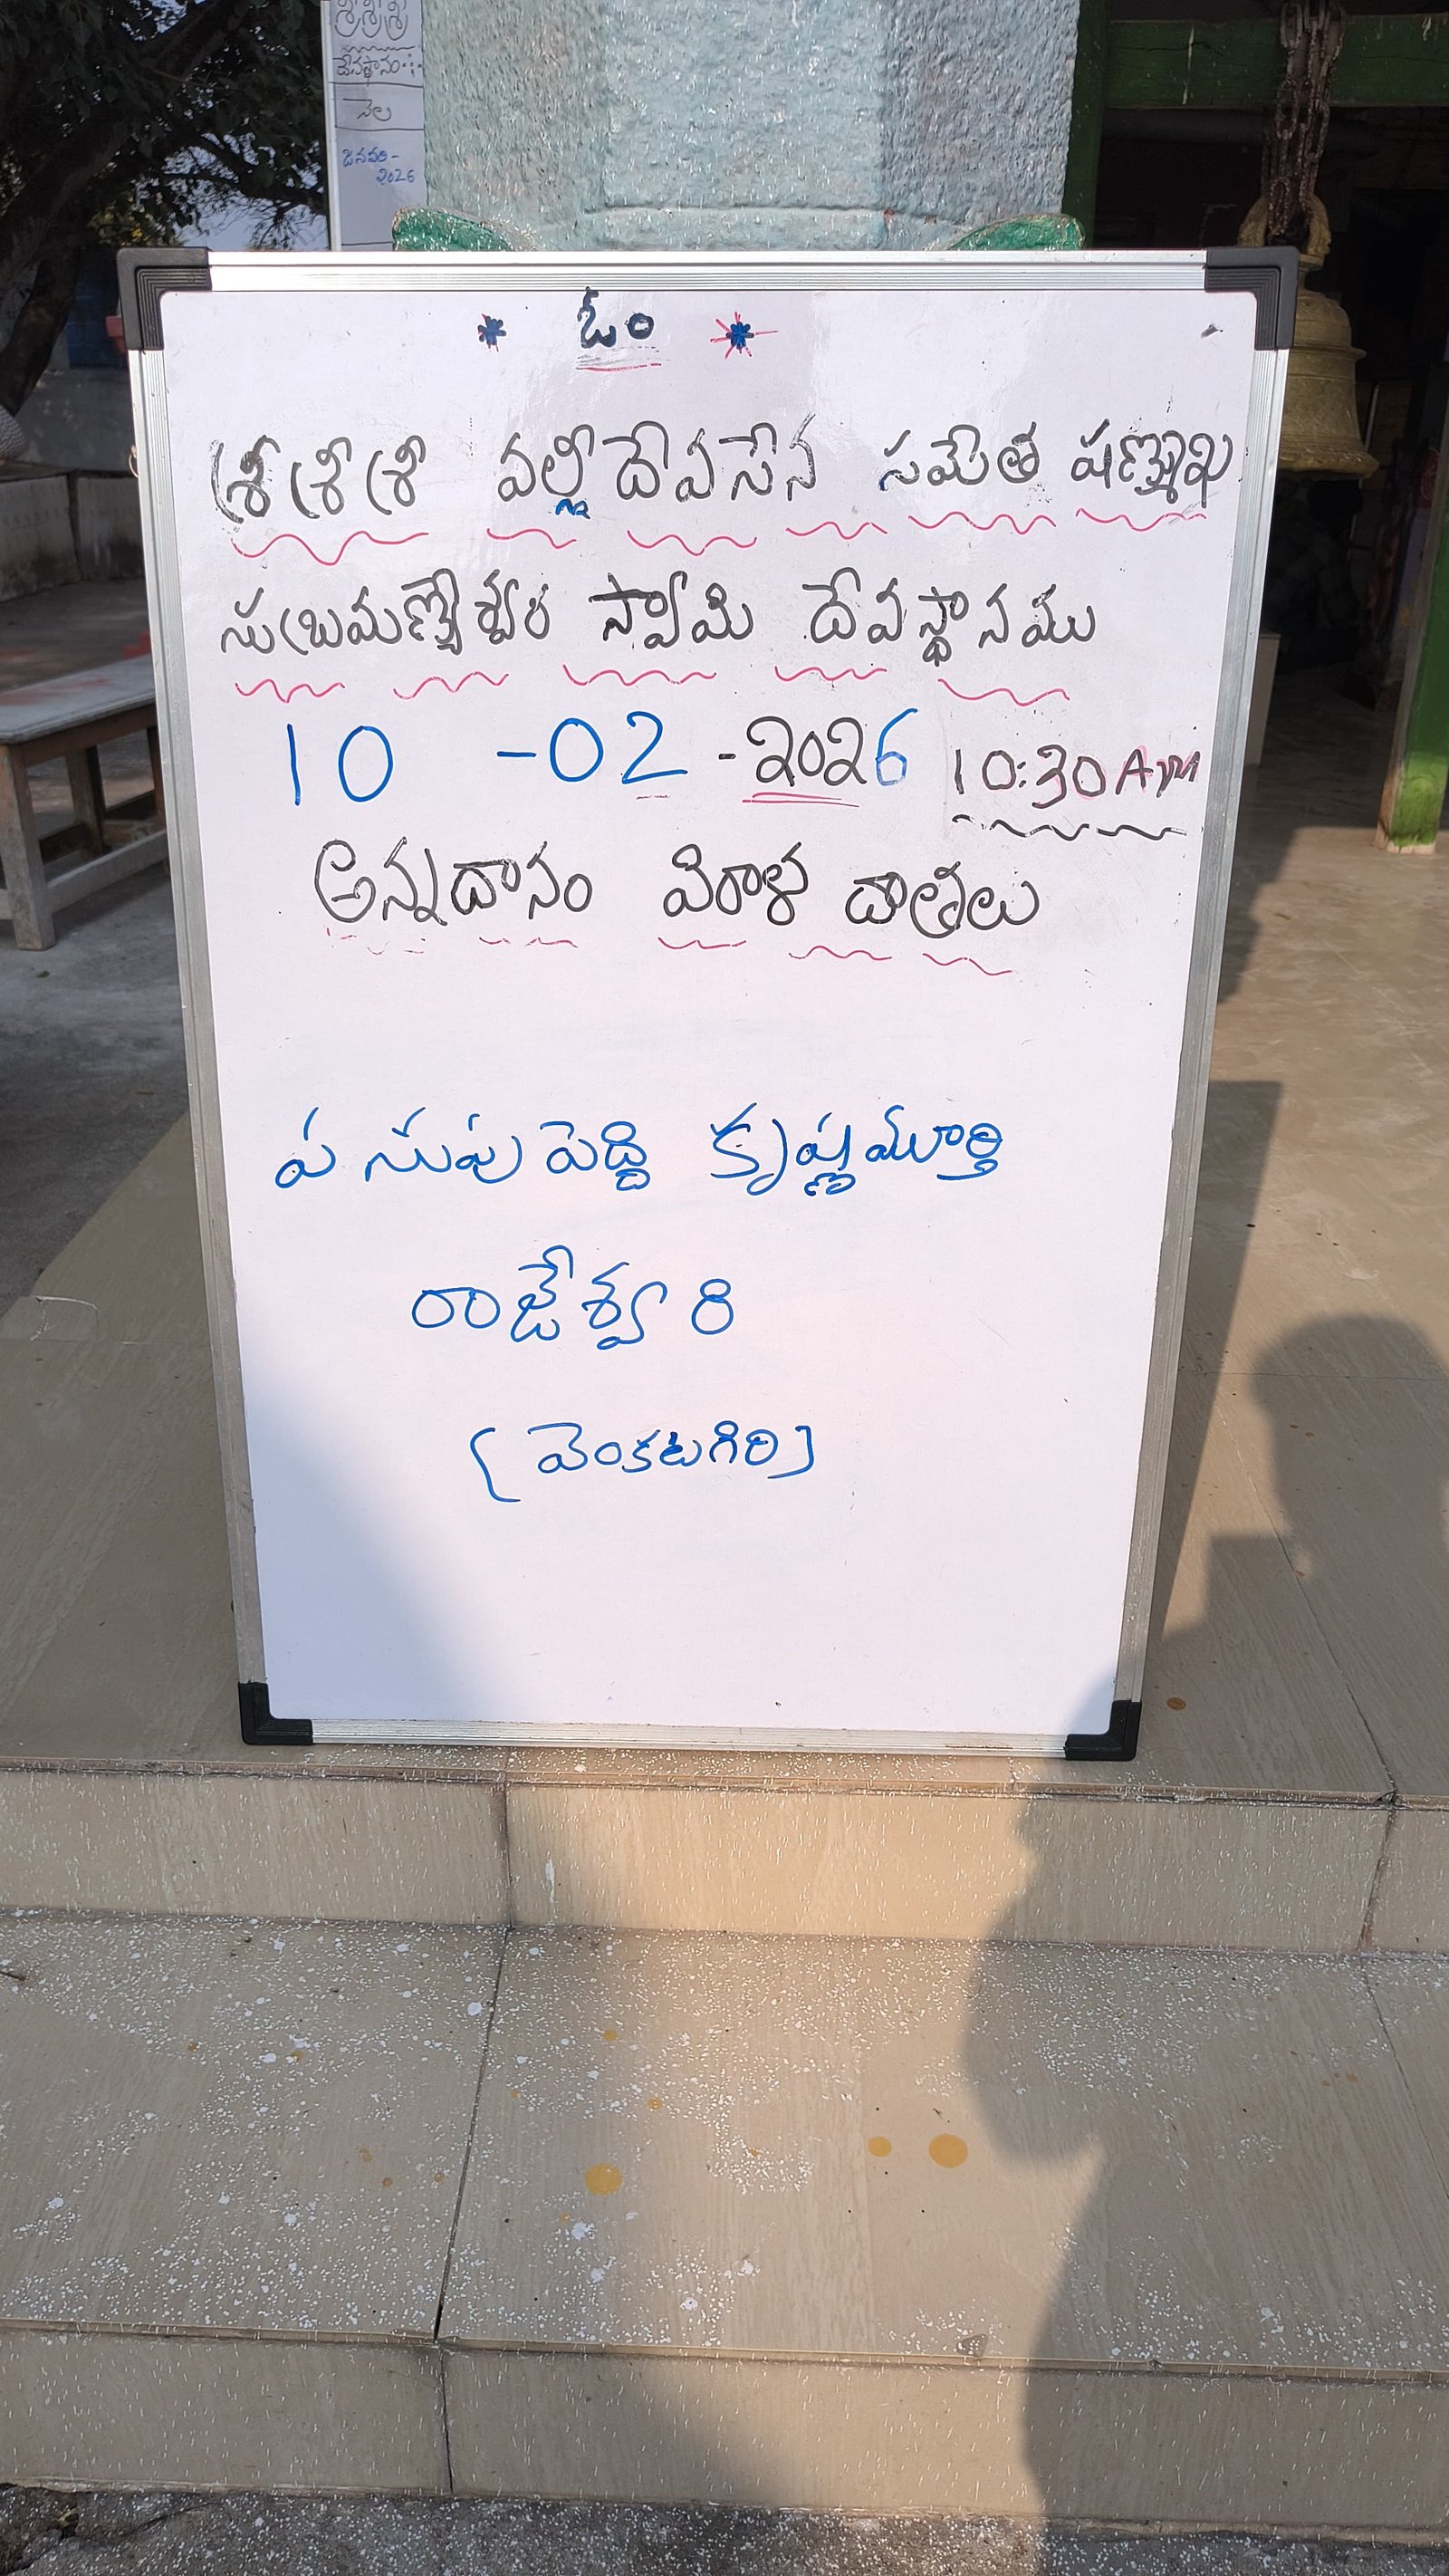 శ్రీశ్రీశ్రీ
దేవస్థానం
నెల
జనవరి-
2026
* ఓం *
శ్రీ శ్రీ శ్రీ వల్లీదేవసేన సమేత షణ్ముఖ
సుబ్రమణ్యేశ్వర స్వామి దేవస్థానము
10 -02 -2026 10:30AM
అన్నదానం విరాళ దాతలు
పసుపుపెద్ది కృష్ణమూర్తి
రాజేశ్వరి
(వెంకటగిరి)